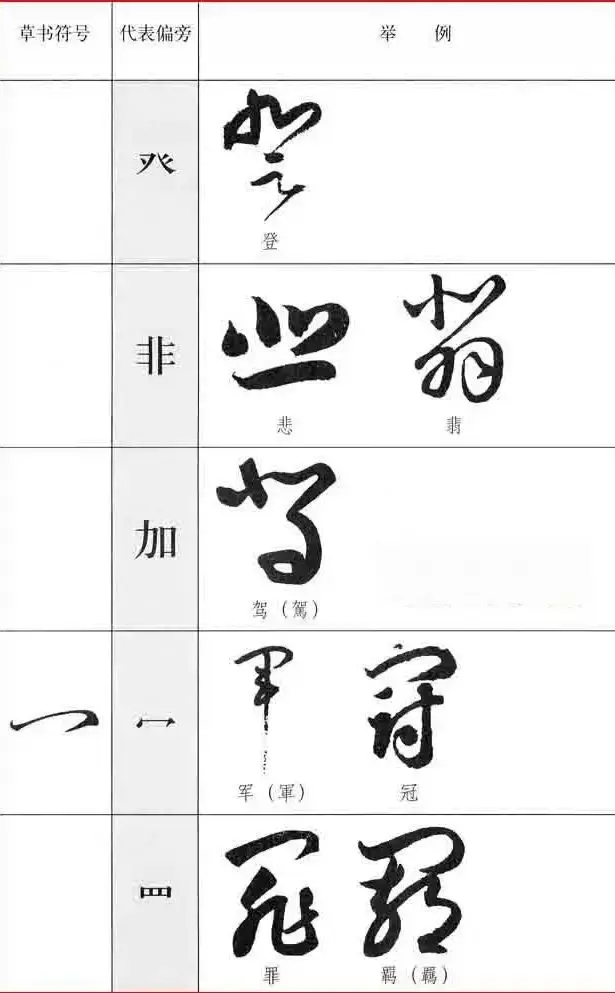 草书符号 代表偏旁 举 例
癶
登
非
悲 翡
加
驾（駕）
冖
军（軍） 冠
罒
罪 羁（羈）